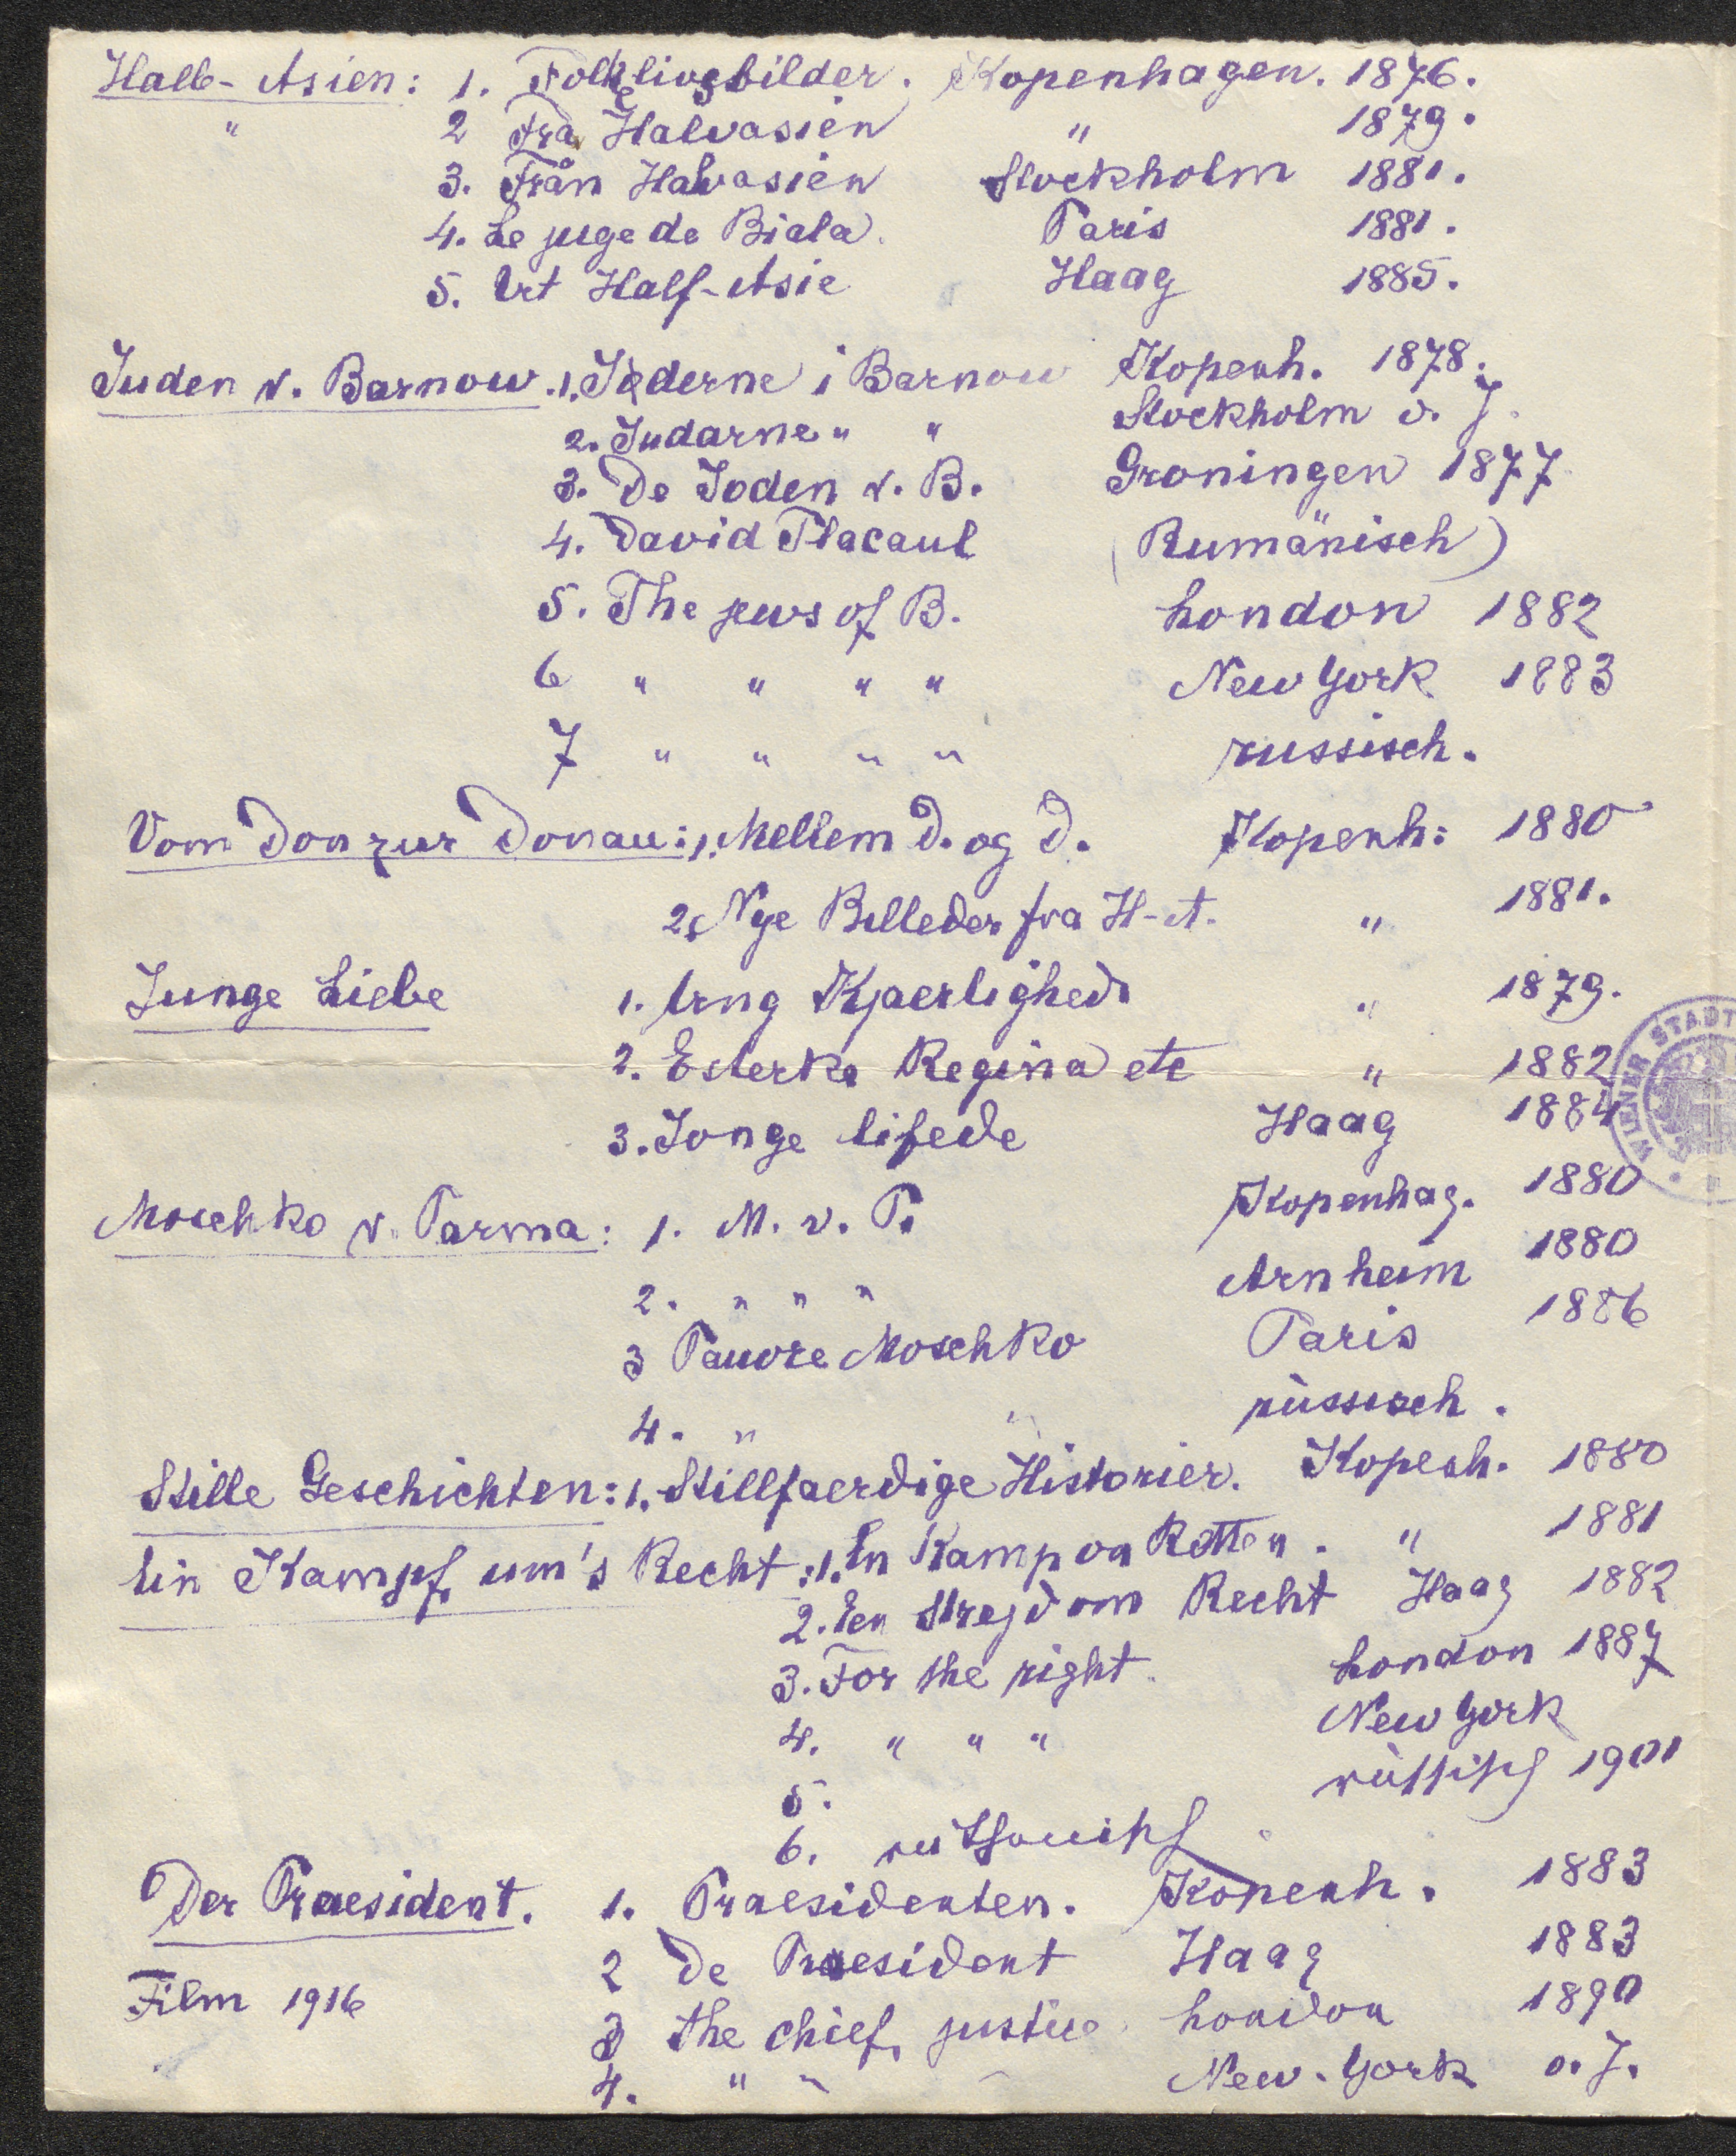 Halb-Asien: 1. Folkelivsbilder. Kopenhagen. 1876.
" 2 Fra Halvasien " 1879.
3. Från Halvasien Stockholm 1881.
4. Le juge de Biala. Paris 1881.
5. Uit Half-Asie Haag 1885.
Juden v. Barnow. 1. Jøderne i Barnow Kopenh. 1878.
2. Judarne " " Stockholm o. J.
3. De Joden v. B. Groningen 1877
4. David Placaul (Rumänisch)
5. The jews of B. London 1882
6 " " " " New York 1883
7 " " " " russisch.
Vom Don zur Donau: 1. Mellem D. og D. Kopenh: 1880
2. Nye Billeder fra H-A. " 1881.
Junge Liebe 1. Ung Kjaerlighed " 1879.
2. Esterka Regina etc " 1882
3. Jonge liefede Haag 1884
WIENER STADT
Moschko v. Parma: 1. M. v. P. Kopenhag. 1880
2. " " " Arnheim 1880
3 Pauvre Moschko Paris 1886
4. " " russisch.
Stille Geschichten: 1. Stillfaerdige Historier. Kopenh. 1880
Ein Kampf um's Recht: 1. En Kamp om Retten. " 1881
2. Een Strejd om Recht Haag 1882
3. For the right. London 1887
4. " " " New York
5. russisch 1901
6. ruthenisch
Der Praesident. 1. Praesidenten. Kopenh. 1883
2 De Praesident Haag 1883
Film 1916
3 the chief justice London 1890
4. " " " New-York o. J.